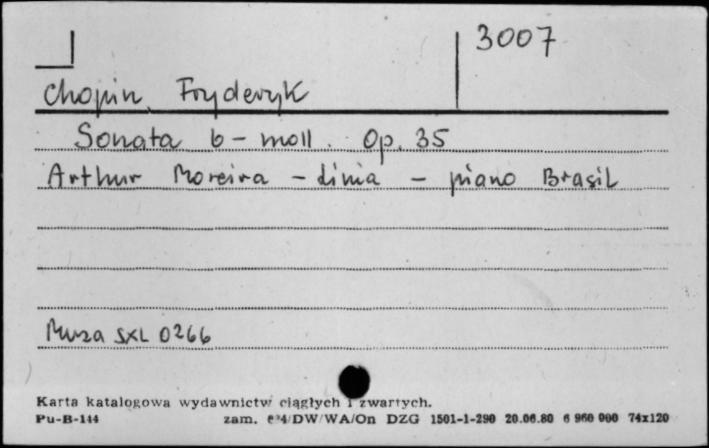 3007
Chopin, Fryderyk
Sonata b-moll. Op. 35
Arthur Moreira - Lima - piano Brasil
Muza SXL 0266
Karta katalogowa wydawnictw ciągłych i zwartych.
Pu-B-144 zam. DW/WA/On DZG 1501-1-290 20.06.80 6 960 000 74x120